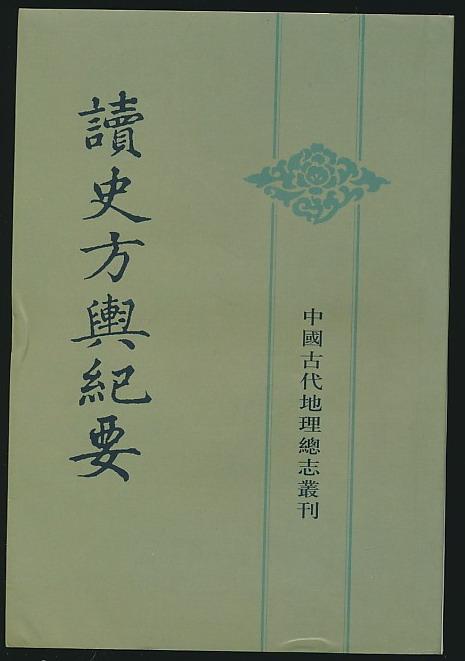 讀史方輿紀要
中國古代地理總志叢刊